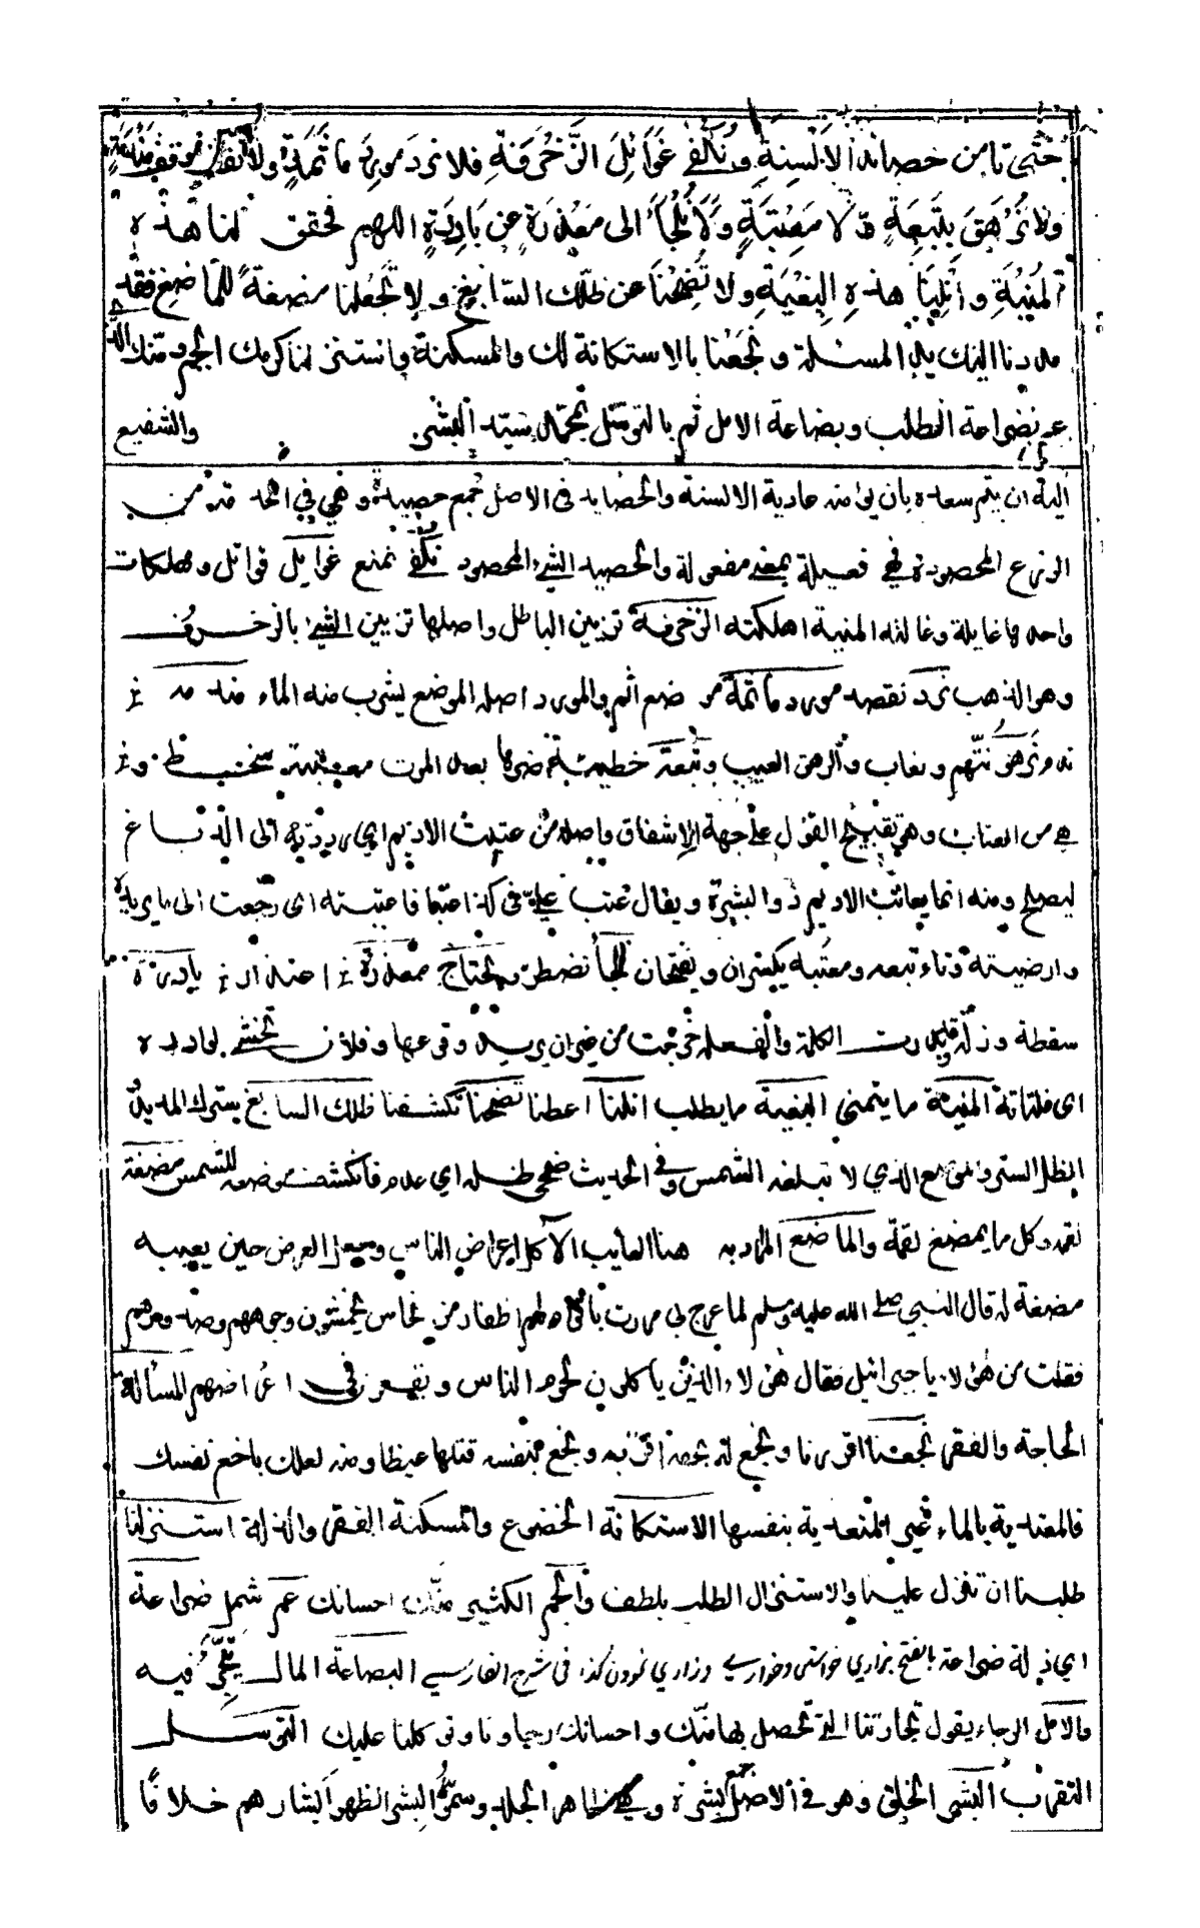 حَتّٰى نامن حصائد الاَلْسِنَةِ وَنُكْفٰى غَوَائِلَ الزَّخْرَفَةِ فلا نرد موردَ مأثمةٍ ولا نقف موقف مندمةٍ
ولا نُرْهَقَ بِتَبِعَةٍ وَّلا مَعْتَبَةٍ وَّلَا نُلْجَأَ الى مَعْذِرَةٍ عن بَادِرَةٍ اللهم فحقق لنا هذه
الْمُنْيَةَ وانلنا هذهِ الْبُغْيَةَ ولا تُضْحِنَا عن ظلّك السّابغ ولا تَجْعَلْنا مضغةً للماضغ فقد
مددنا اليك يد المسئلة وبخَعْنا بالاستكانة لك والمسكنة واستنزلنا كرمك الجم ومنك الذى
عم بضراعة الطلب وبضاعة الامل ثم بالتوسّل بمحمّد سيّد البشر والشفيع
اليه ان يتم سعادة بان يؤمنه عادية الالسنة والحصايد فى الاصل جمع حصيدة وهي في
الزرع المحصودة فهى فعيلة بمعنى مفعولة والحصيد الشىء المحصود نكفى نمنع غوايل قواتل ومهلكات
واحدها غايلة وغالته المنية اهلكته الزخرفة تزيين الباطل واصلها تزيين الشىء بالزخرف
وهو الذهب نرد نقصد مورد مأثمة موضع اثم والمورد اصله الموضع يشرب منه الماء
نرهق نتهم ونعاب والرهق العيب وتبعة خطيئة ضرها بعد الموت معتبة سخط
هى من العتاب وهى تقبيح القول على جهة الاشفاق واصله من عتبت الاديم اي رددته الى الدباغ
ليصلح ومنه انما يعاتب الاديم ذو البشرة ويقال عتب علىّ فى كذا عتبا فاعتبته اى رجعت الى ما يريده
وارضيته وتاء تبعه ومعتبه يكسران ويفتحان نلجأ نضطر ونحتاج معذرة اعتذار بادرة
سقطة وزلة بدرت الكلمة والفعلة خرجت من غير ان يريد وقوعها وفلان تخشى بوادره
اى فلتاته المنية ما يتمنى البغية ما يطلب انلنا اعطنا تضحنا تكشفنا ظلك السابغ سترك المديد
الظل الستر والموضع الذي لا تبلغه الشمس وفى الحديث ضحى ظله اي عدم فانكشف موضعه للشمس مضغة
لقمة وكل ما يمضغ لقمة والماضغ المراد به هنا العايب الآكل اعراض الناس وجعل العرض حين يعيبه
مضغة له قال النبي صلى الله عليه وسلم لما عرج بى مررت باقوام لهم اظفار من نحاس يخمشون وجوههم وصدورهم
فقلت من هؤلاء يا جبرائيل فقال هؤلاء الذين ياكلون لحوم الناس ويقعون فى اعراضهم المسألة
الحاجة والفقر بخعنا اقررنا وبخع له بحقه اقرّ به وبخع بنفسه قتلها غيظا ومنه لعلك باخع نفسك
فالمعتدية بالباء غير المتعدية بنفسها الاستكانة الخضوع والمسكنة الفقر والذلة استنزلنا
طلبنا ان تنزل علينا والاستنزال الطلب بلطف والجم الكثير منّك احسانك عم شمل ضراعة
اي ذلة ضراعة بالفتح بزاري خواستن وخواري وزاري نمودن كذا فى شرح الفارسي البضاعة المال يتجر فيه
والامل الرجاء يقول تجارتنا التي تحصل بها منّك واحسانك رجاونا وتوكلنا عليك التوسل
التقرب البشر الخلق وهو فى الاصل جمع بشرة وهى ظاهر الجلد وسمّوا البشر لظهور ابشارهم خلافًا